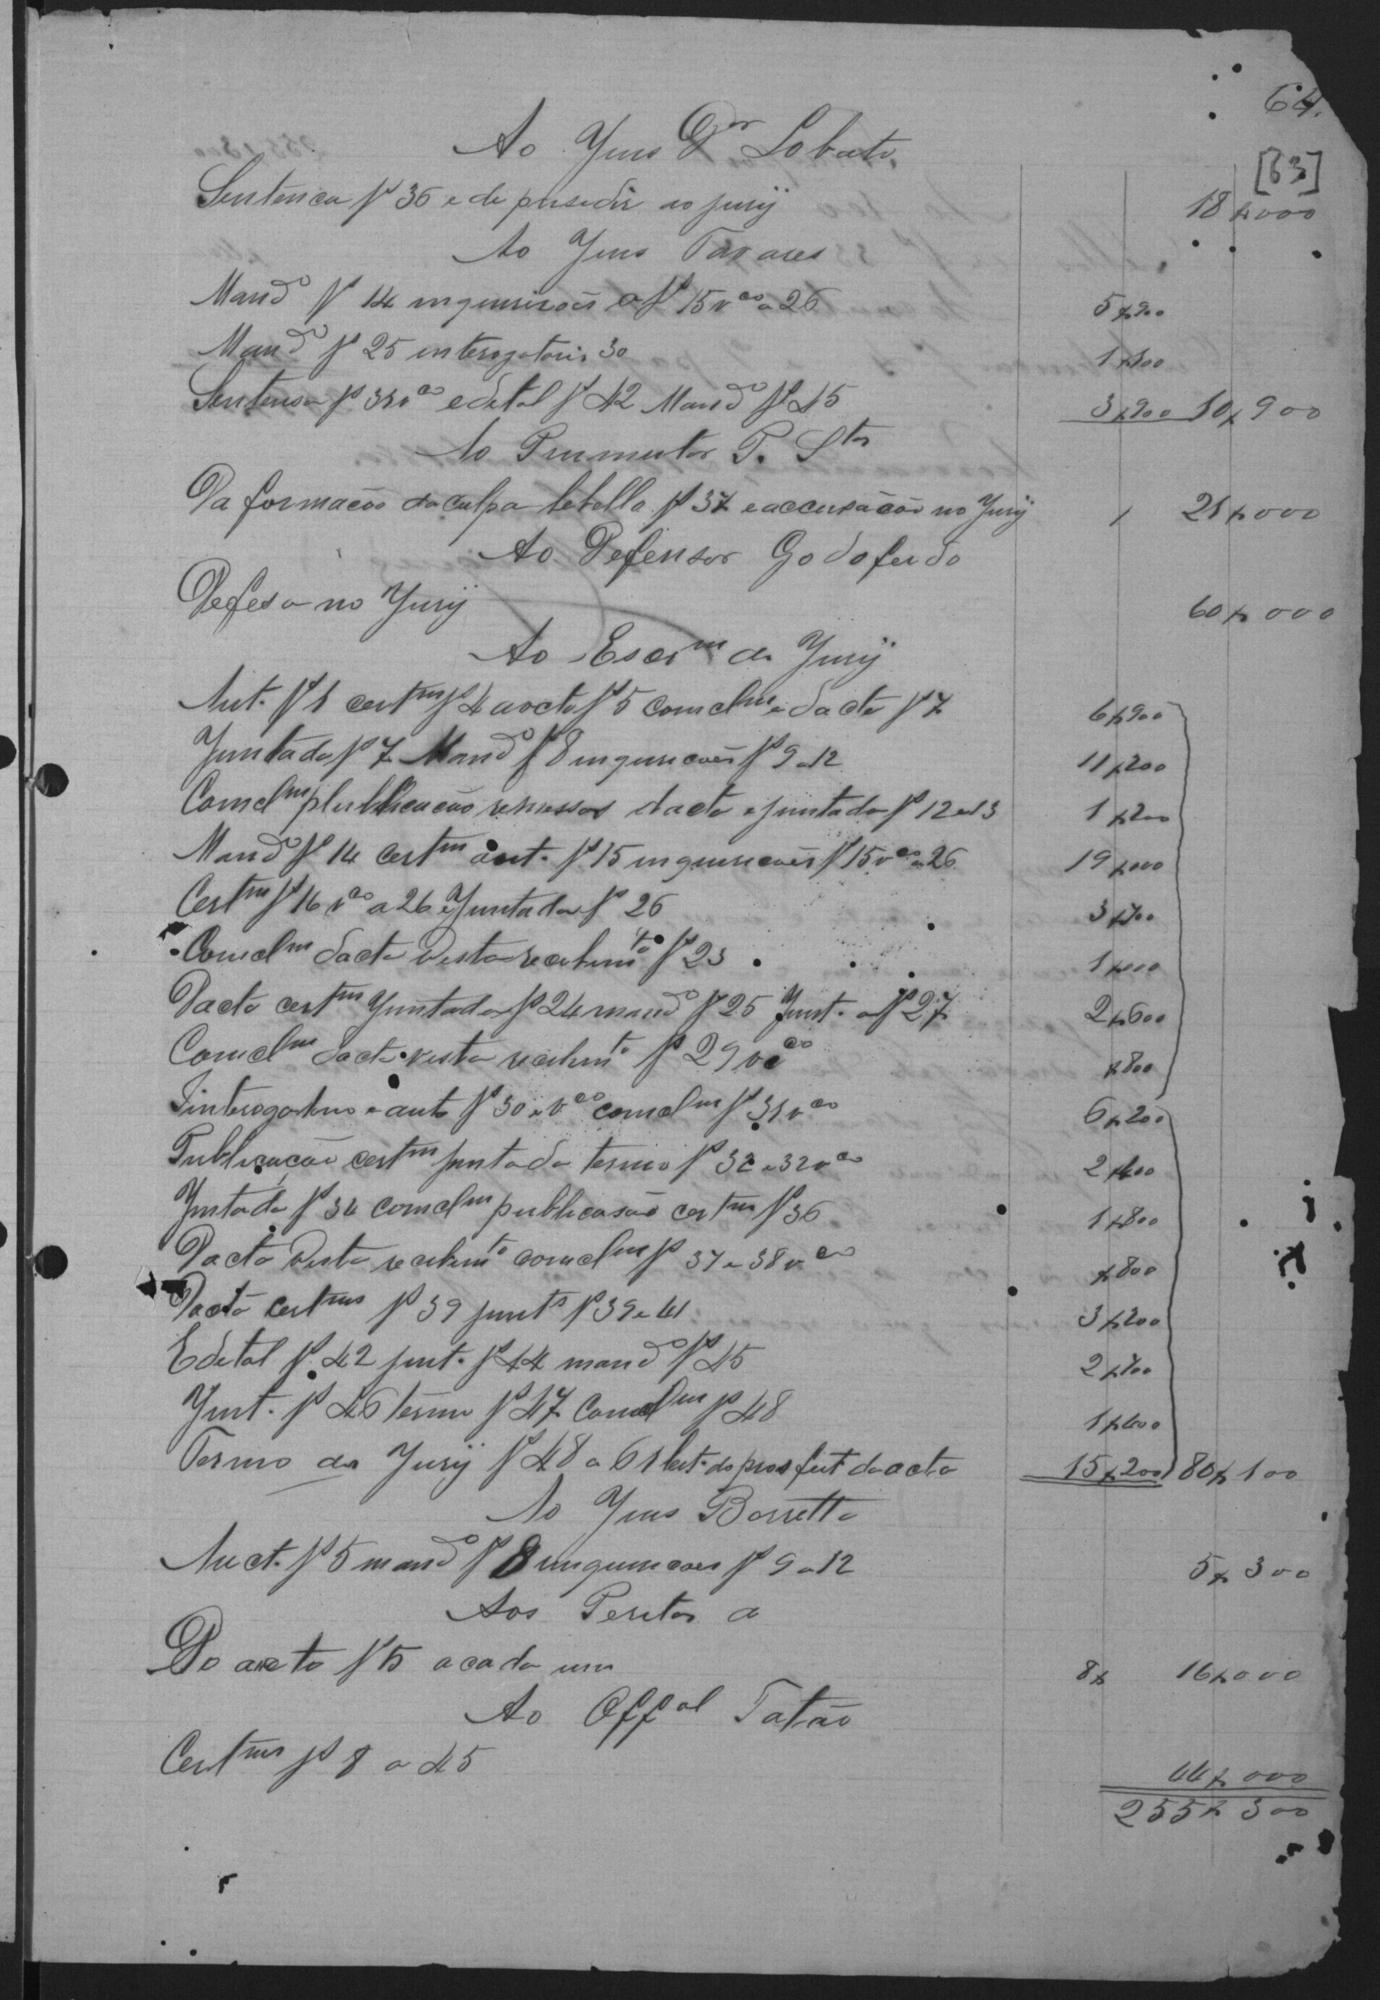 64.
[63]
Ao Juis Dor Lobato
Sentenca fl 36 e de presedir ao jurÿ 18$000
Ao Juis Tavares
Mando fl 14 inquirisões a fl 15 vco a 26 5$900
Mando fl 25 interogatorio 30
Sentensa fl 32 vco edital fl 42 Mando fl 45 3$900 10$900
Ao Prumutor P. Stos
Da formacão da culpa libello fl 37 e accusacão no Jurÿ
Ao Defensor Godofredo
Defesa no Jurÿ 60$000
Ao Escrm do Jurÿ
Aut. fl 1 certm fl 4 aucto fl 5 comclm e dacta fl 7 6$900
Juntada fl 7 Mando fl 8 inquiricões fl 9 a 12 11$200
Comclm publicacão remessas dacta e juntada fl 12 e 13 1$200
Mando fl 14 certm aut. fl 15 inquiricões fl 15 vco a 26 19$000
Certm fl 16 vco a 26 e Juntada fl 26
Comclm dacta vista recebimto fl 23 1$000
Dacta certm Juntada fl 24 mando fl 25 Junt. a fl 27 2$600
Comclm dacta vista recebimto fl 29 vco $800
Iinterogatorio e auto fl 30 e vco comclm fl 31 vco 6$200
Publicacão certm juntada termo fl 32 e 32 vco
Juntada fl 34 comclm publicasão certm fl 36 1$800
Dacta Vista recebimto comclm fl 37 e 38 vco $800
Dacta certms fl 39 junts fl 39 e 41 3$200
Edital fl 42 junt. fl 44 mando fl 45 2$700
Junt. fl 46 termo fl 47 Comclm fl 48 1$400
Termo do Jurÿ fl 48 a 61 do feit da acta 15$200 80$100
Ao Juis Barretto
Auct. fl 5 mando fl 8 inquiricões fl 9 a 12 5$300
Aos Peritos a
Do aucto fl 5 a cada um 8$ 16$000
Ao Offal Falcão
Certms fl 8 a 45 44$000
255$300